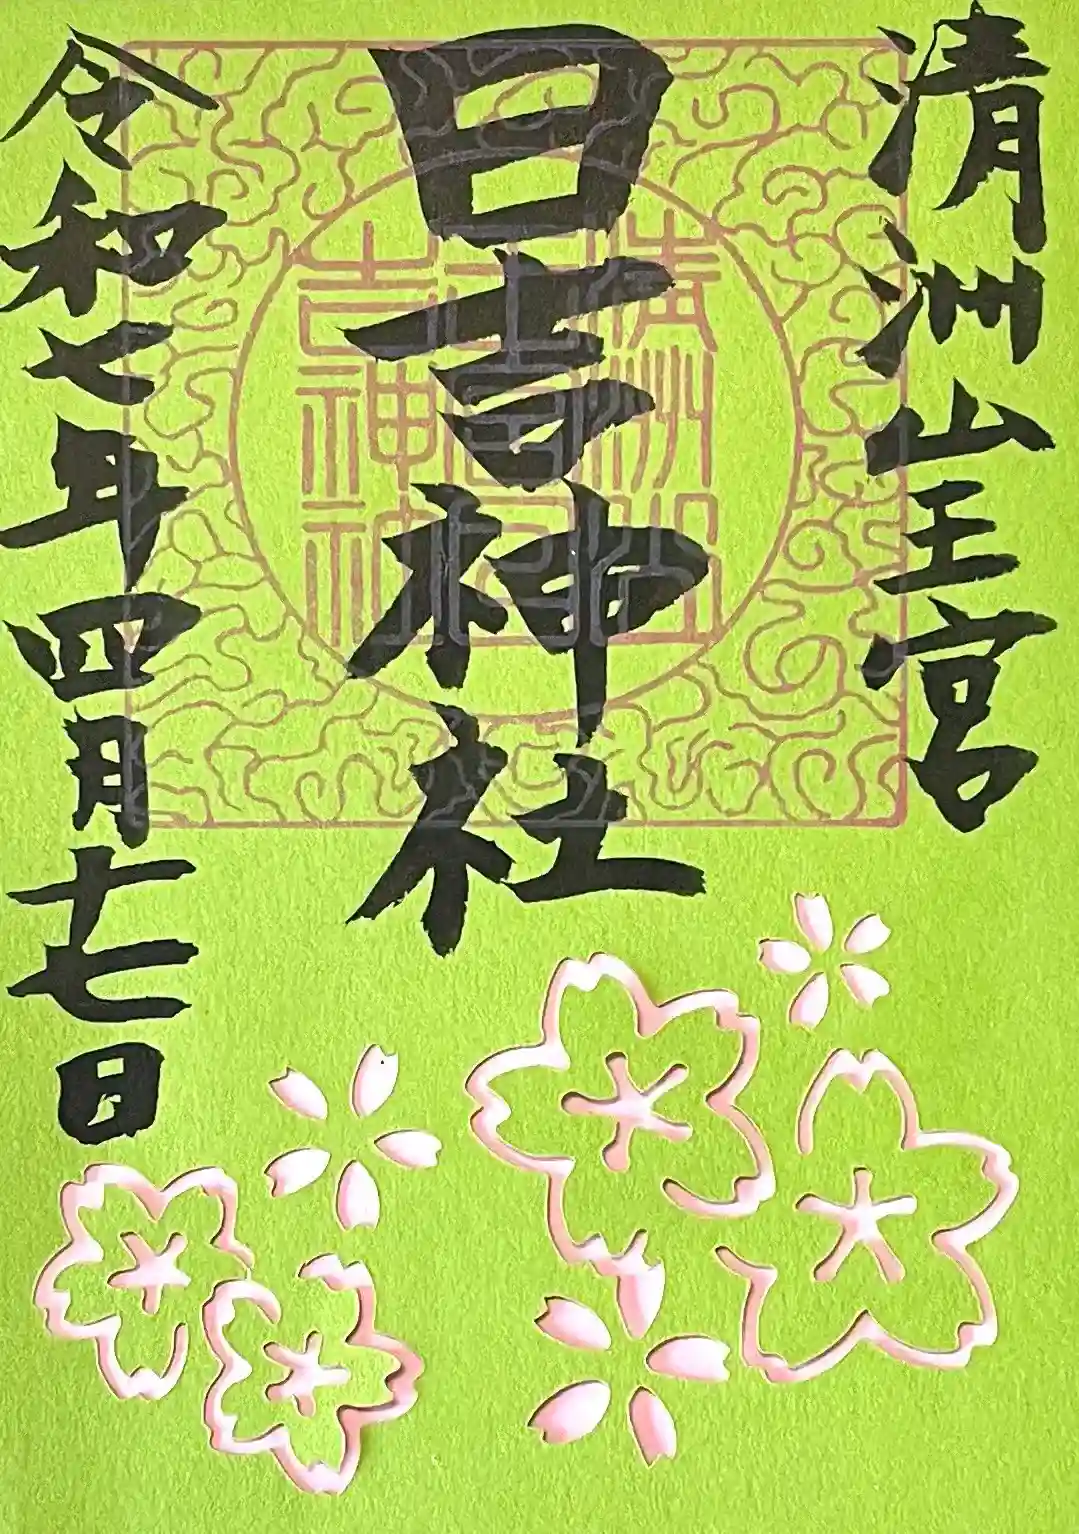 清洲山王宮
日吉神社
令和七年四月十七日
清洲山
王宮日
吉神社